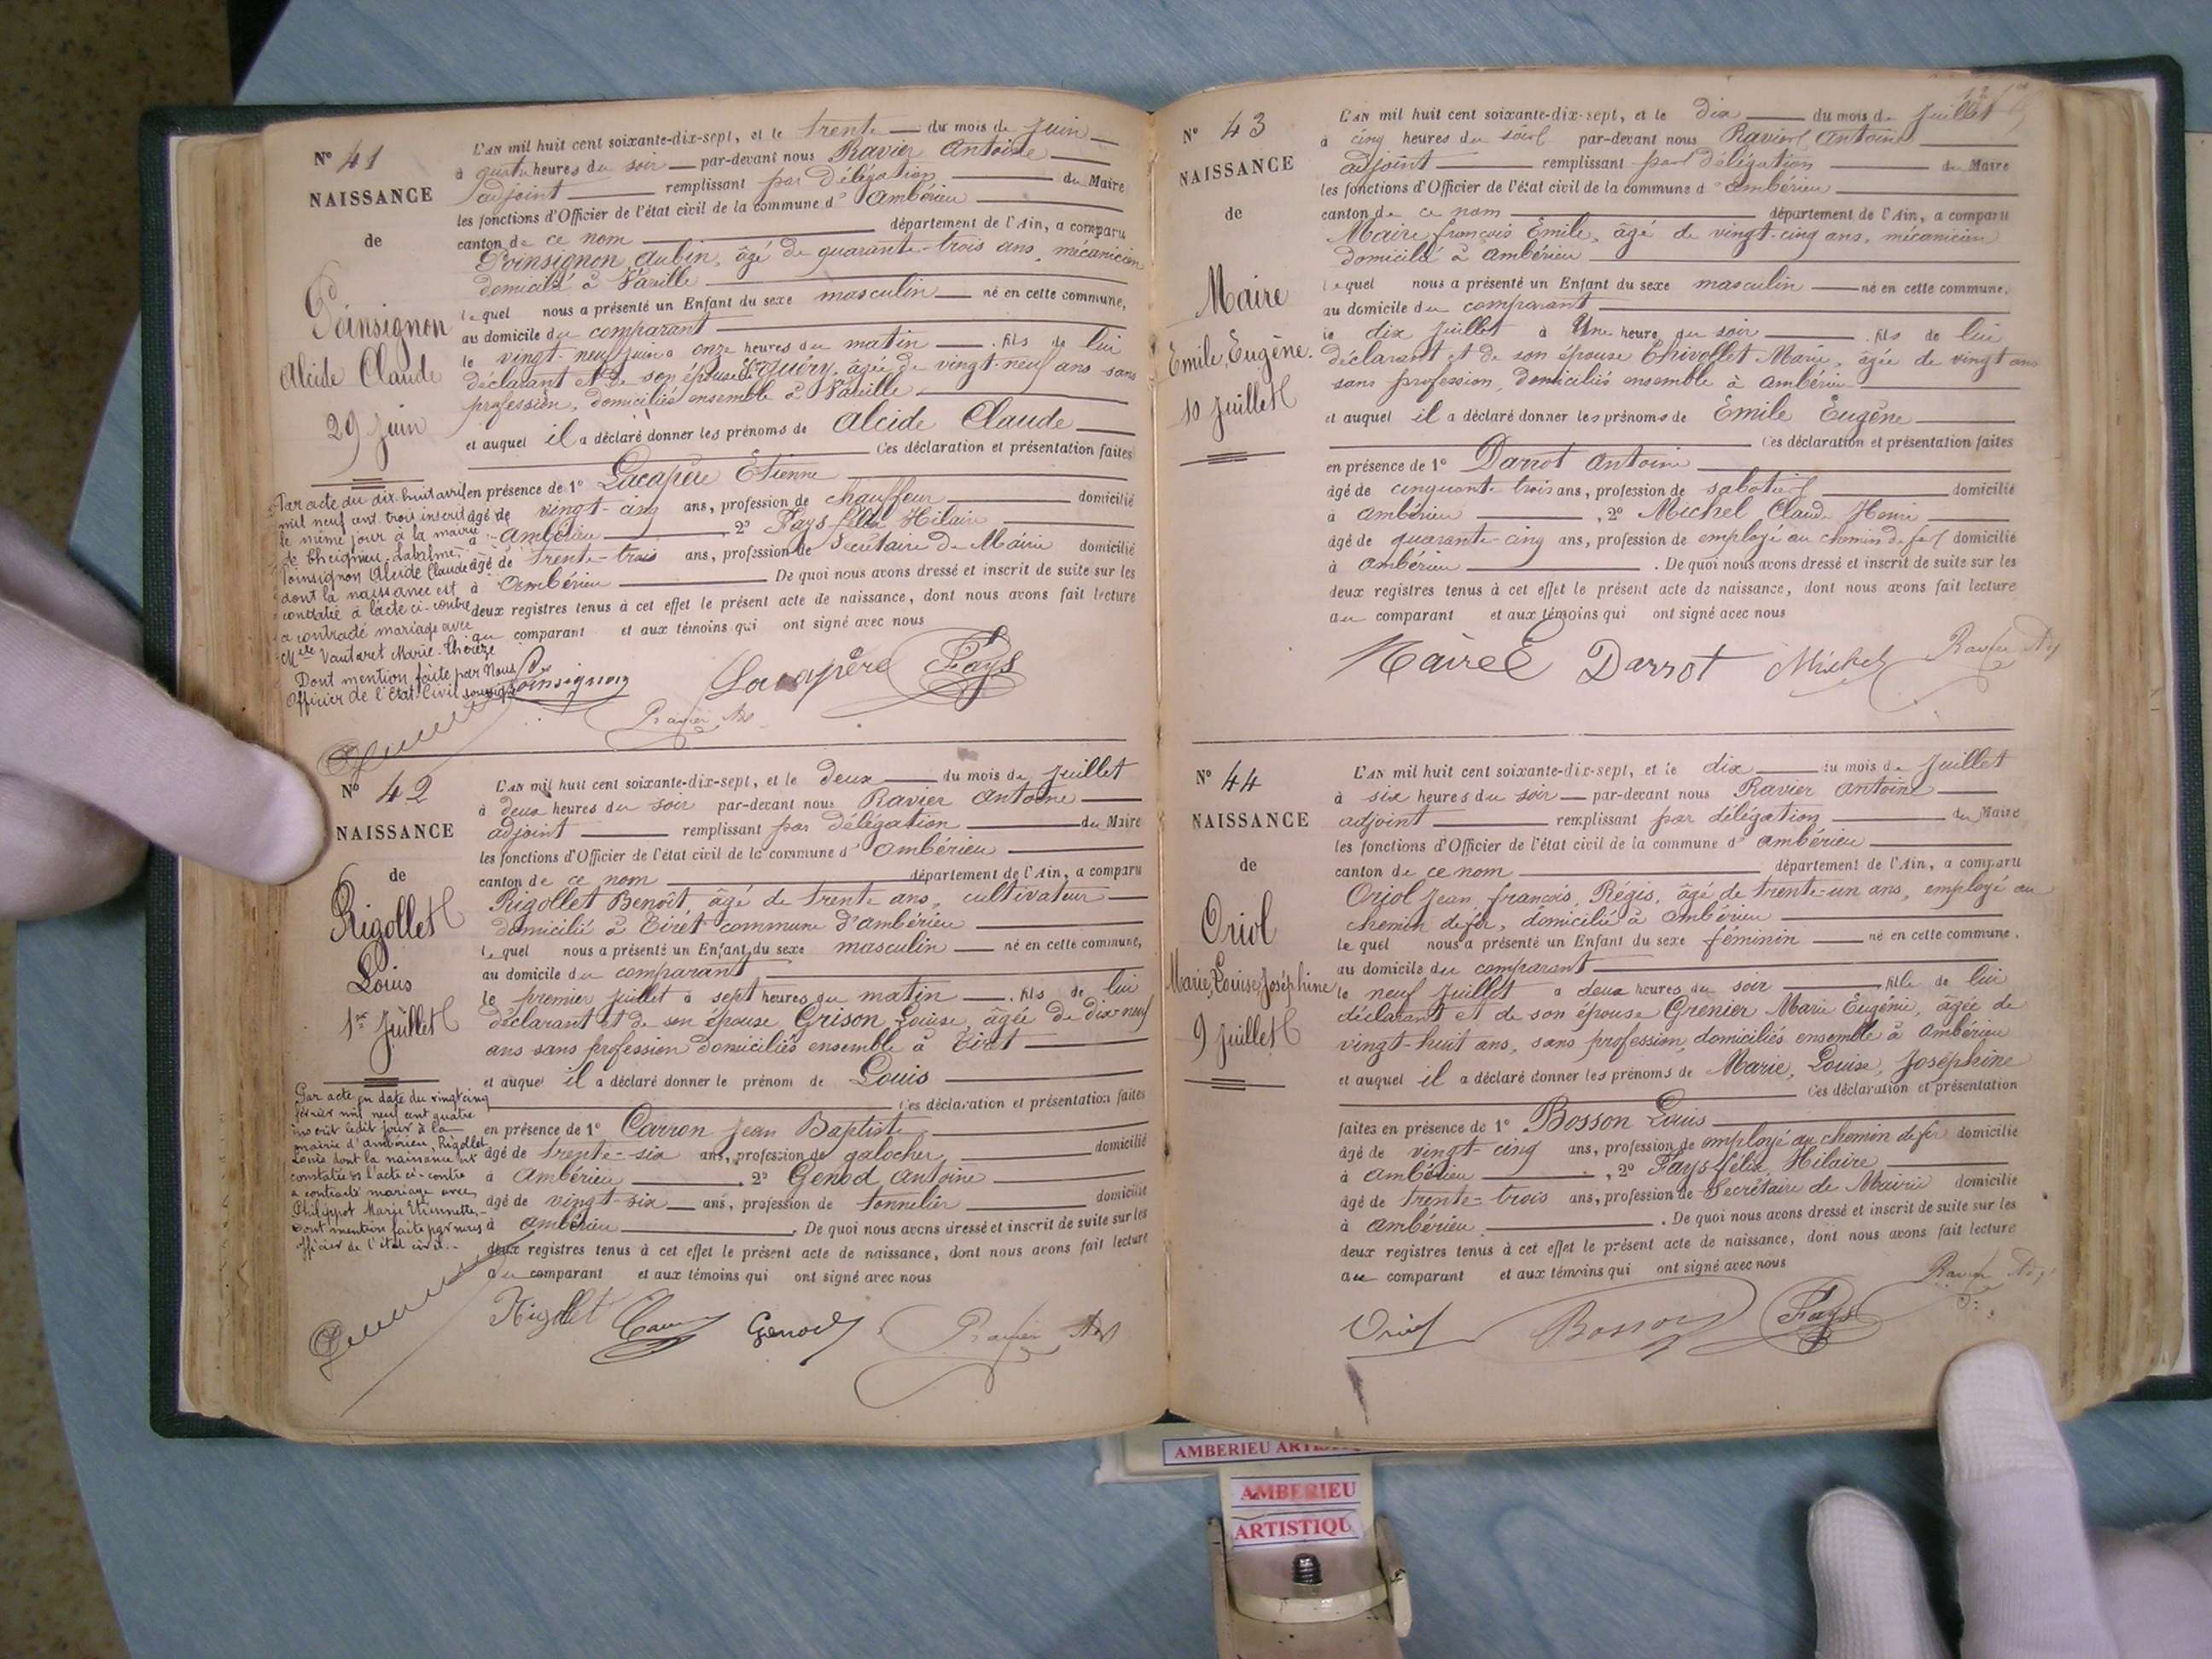 N° 41
NAISSANCE
de
Poinsignon
Alcide Claude
29 Juin
L'AN mil huit cent soixante-dix-sept, et le trente du mois de Juin
à quatre heures du soir par-devant nous Ravier Antoine
adjoint remplissant par délégation du Maire
les fonctions d'Officier de l'état civil de la commune d'Ambérieu
canton de ce nom département de l'Ain, a comparu
Poinsignon Aubin, âgé de quarante-trois ans, mécanicien
domicilié à Vareille
lequel nous a présenté un Enfant du sexe masculin né en cette commune,
au domicile du comparant
le vingt-neuf Juin à onze heures du matin fils de lui
déclarant et de son épouse âgée de vingt-neuf ans sans
profession, domiciliés ensemble à Vareille
et auquel il a déclaré donner les prénoms de Alcide Claude
Ces déclaration et présentation faites
en présence de 1° Lacapère Etienne
âgé de vingt-cinq ans, profession de chauffeur domicilié
à Ambérieu 2° Fays félix Hilaire
âgé de trente-trois ans, profession de Secrétaire de Mairie domicilié
à Ambérieu De quoi nous avons dressé et inscrit de suite sur les
deux registres tenus à cet effet le présent acte de naissance, dont nous avons fait lecture
au comparant et aux témoins qui ont signé avec nous
Par acte du dix-huit avril
mil neuf cent trois inscrit
le même jour à la mairie
de Cheignieu-Labalme,
Poinsignon Alcide Claude
dont la naissance est
constatée à l'acte ci-contre
a contracté mariage avec
Mlle Vautaret Marie-Thérèze
Dont mention faite par Nous
Officier de l'Etat Civil soussigné
Poinsignon Lacapère Fays
Ravier Adj
N° 42
NAISSANCE
de
Rigollet
Louis
1er Juillet
L'AN mil huit cent soixante-dix-sept, et le deux du mois de Juillet
à deux heures du soir par-devant nous Ravier Antoine
adjoint remplissant par délégation du Maire
les fonctions d'Officier de l'état civil de la commune d'Ambérieu
canton de ce nom département de l'Ain, a comparu
Rigollet Benoît, âgé de trente ans, cultivateur
domicilié à Tiret commune d'Ambérieu
lequel nous a présenté un Enfant du sexe masculin né en cette commune,
au domicile du comparant
le premier Juillet à sept heures du matin fils de lui
déclarant et de son épouse Grison Louise, âgée de dix-neuf
ans sans profession domiciliés ensemble à Tiret
et auquel il a déclaré donner le prénom de Louis
Ces déclaration et présentation faites
en présence de 1° Carron Jean Baptiste
âgé de trente-six ans, profession de galocher domicilié
à Ambérieu 2° Genod Antoine
âgé de vingt-six ans, profession de tonnelier domicilié
à Ambérieu De quoi nous avons dressé et inscrit de suite sur les
deux registres tenus à cet effet le présent acte de naissance, dont nous avons fait lecture
au comparant et aux témoins qui ont signé avec nous
Par acte en date du vingt cinq
février mil neuf cent quatre
inscrit ledit jour à la
mairie d'Ambérieu, Rigollet
Louis dont la naissance est
constatée à l'acte ci-contre
a contracté mariage avec
Philippot Marie Etiennette,
Dont mention faite par nous
officier de l'état civil.
Rigollet Carron Genod Ravier Adj
N° 43
NAISSANCE
de
Maire
Emile, Eugène.
10 Juillet
L'AN mil huit cent soixante-dix-sept, et le dix du mois de Juillet
à cinq heures du soir par-devant nous Ravier Antoine
adjoint remplissant par délégation du Maire
les fonctions d'Officier de l'état civil de la commune d'Ambérieu
canton de ce nom département de l'Ain, a comparu
Maire françois Emile, âgé de vingt-cinq ans, mécanicien
domicilié à Ambérieu
lequel nous a présenté un Enfant du sexe masculin né en cette commune,
au domicile du comparant
le dix Juillet à Une heure du soir fils de lui
déclarant et de son épouse Chivollet Marie, âgée de vingt ans
sans profession, domiciliés ensemble à Ambérieu
et auquel il a déclaré donner les prénoms de Emile Eugène
Ces déclaration et présentation faites
en présence de 1° Darrot Antoine
âgé de cinquante-trois ans, profession de sabotier domicilié
à Ambérieu, 2° Michel Claude Henri
âgé de quarante-cinq ans, profession de employé au chemin de fer domicilié
à Ambérieu. De quoi nous avons dressé et inscrit de suite sur les
deux registres tenus à cet effet le présent acte de naissance, dont nous avons fait lecture
au comparant et aux témoins qui ont signé avec nous
Maire E Darrot Michel Ravier Adj
N° 44
NAISSANCE
de
Oriol
Marie, Louise, Joséphine
9 Juillet
L'AN mil huit cent soixante-dix-sept, et le dix du mois de Juillet
à six heures du soir par-devant nous Ravier Antoine
adjoint remplissant par délégation du Maire
les fonctions d'Officier de l'état civil de la commune d'Ambérieu
canton de ce nom département de l'Ain, a comparu
Oriol Jean, françois, Régis, âgé de trente-un ans, employé au
chemin de fer, domicilié à Ambérieu
lequel nous a présenté un Enfant du sexe féminin né en cette commune,
au domicile du comparant
le neuf Juillet à deux heures du soir fille de lui
déclarant et de son épouse Grenier Marie Eugénie, âgée de
vingt-huit ans, sans profession, domiciliés ensemble à Ambérieu
et auquel il a déclaré donner les prénoms de Marie, Louise, Joséphine
Ces déclaration et présentation
faites en présence de 1° Bosson Louis
âgé de vingt-cinq ans, profession de employé au chemin de fer domicilié
à Ambérieu, 2° Fays félix, Hilaire
âgé de trente-trois ans, profession de Secrétaire de Mairie domicilié
à Ambérieu. De quoi nous avons dressé et inscrit de suite sur les
deux registres tenus à cet effet le présent acte de naissance, dont nous avons fait lecture
au comparant et aux témoins qui ont signé avec nous
Oriol Bosson Fays Ravier Adj
AMBERIEU
AMBERIEU
ARTISTIQU